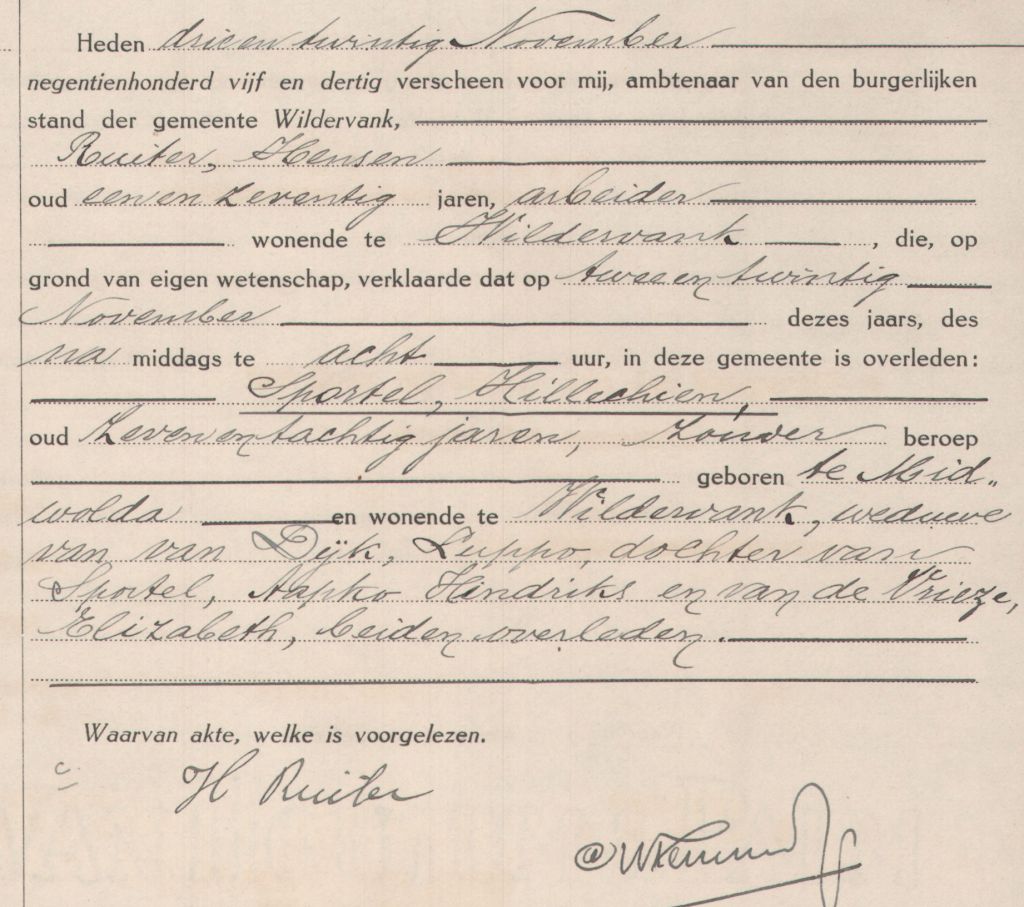 Heden drieen twintig November
negentienhonderd vijf en dertig verscheen voor mij, ambtenaar van den burgerlijken
stand der gemeente Wildervank,
Ruiter, Hensen
oud eenen zeventig jaren, arbeider
wonende te Wildervank, die, op
grond van eigen wetenschap, verklaarde dat op twee en twintig
November dezes jaars, des
na middags te acht uur, in deze gemeente is overleden:
Sportel, Hillechien,
oud zeven en tachtig jaren, zonder beroep
geboren te Mid„
wolda en wonende te Wildervank, weduwe
van van Dijk, Luppo, dochter van
Sportel, Aapko Hindriks en van de Vrieze,
Elizabeth, beiden overleden.
Waarvan akte, welke is voorgelezen.
H Ruiter